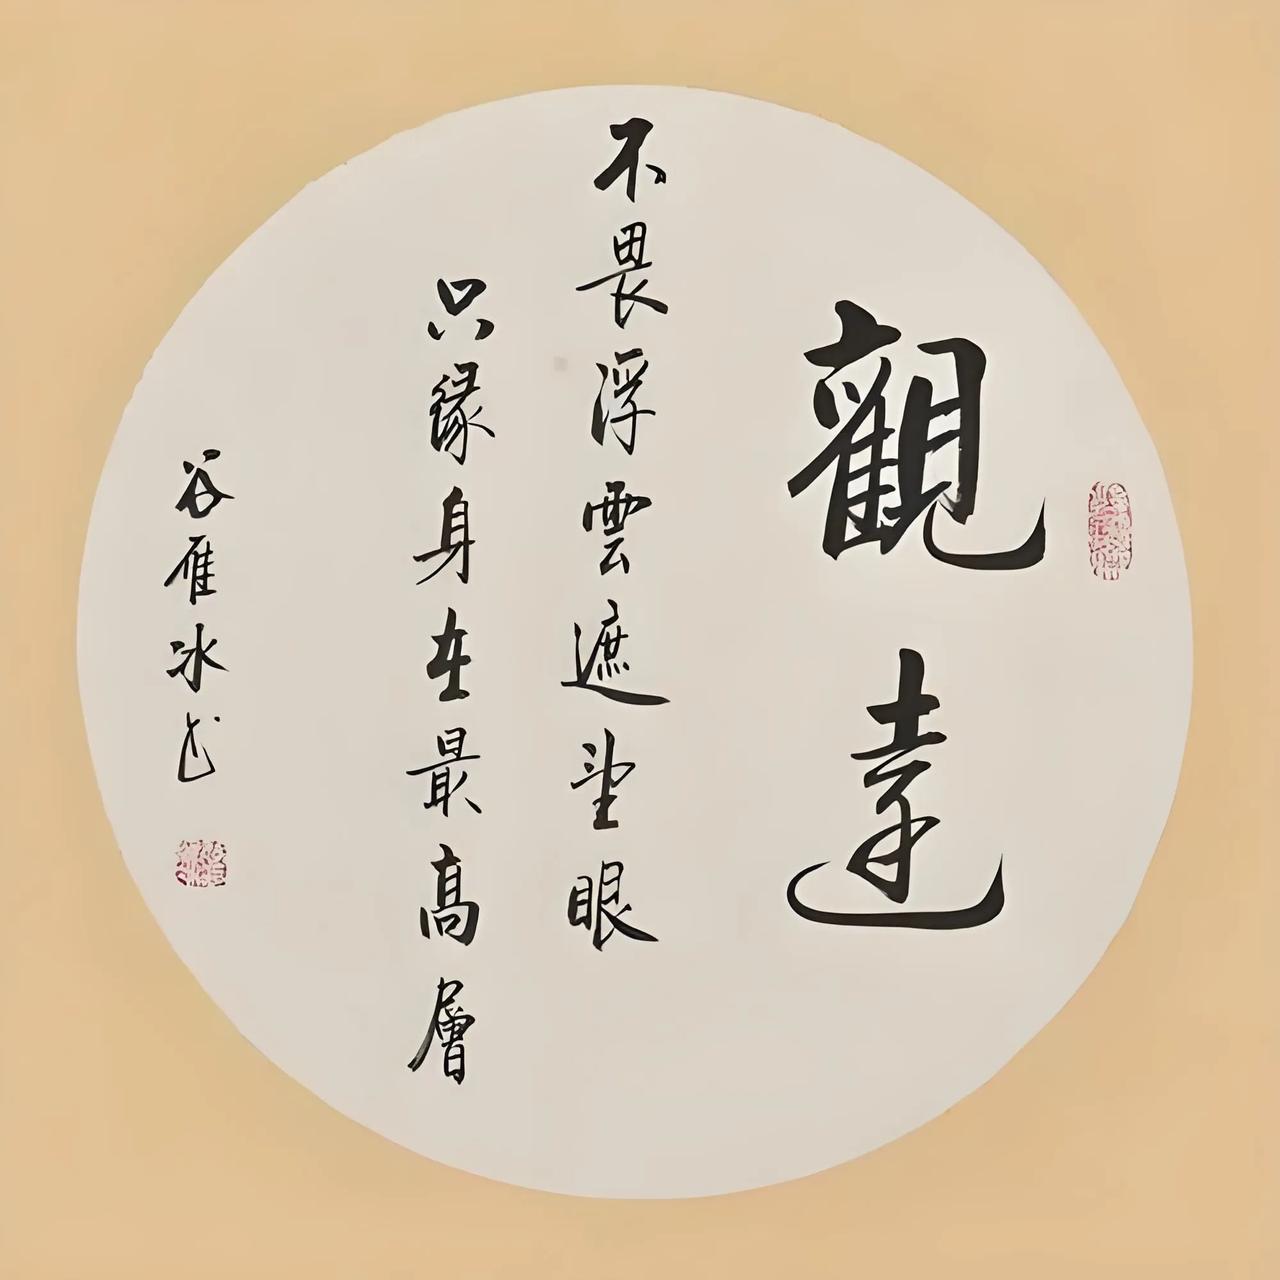 觀遠
不畏浮雲遮望眼
只緣身在最高層
谷雁冰书